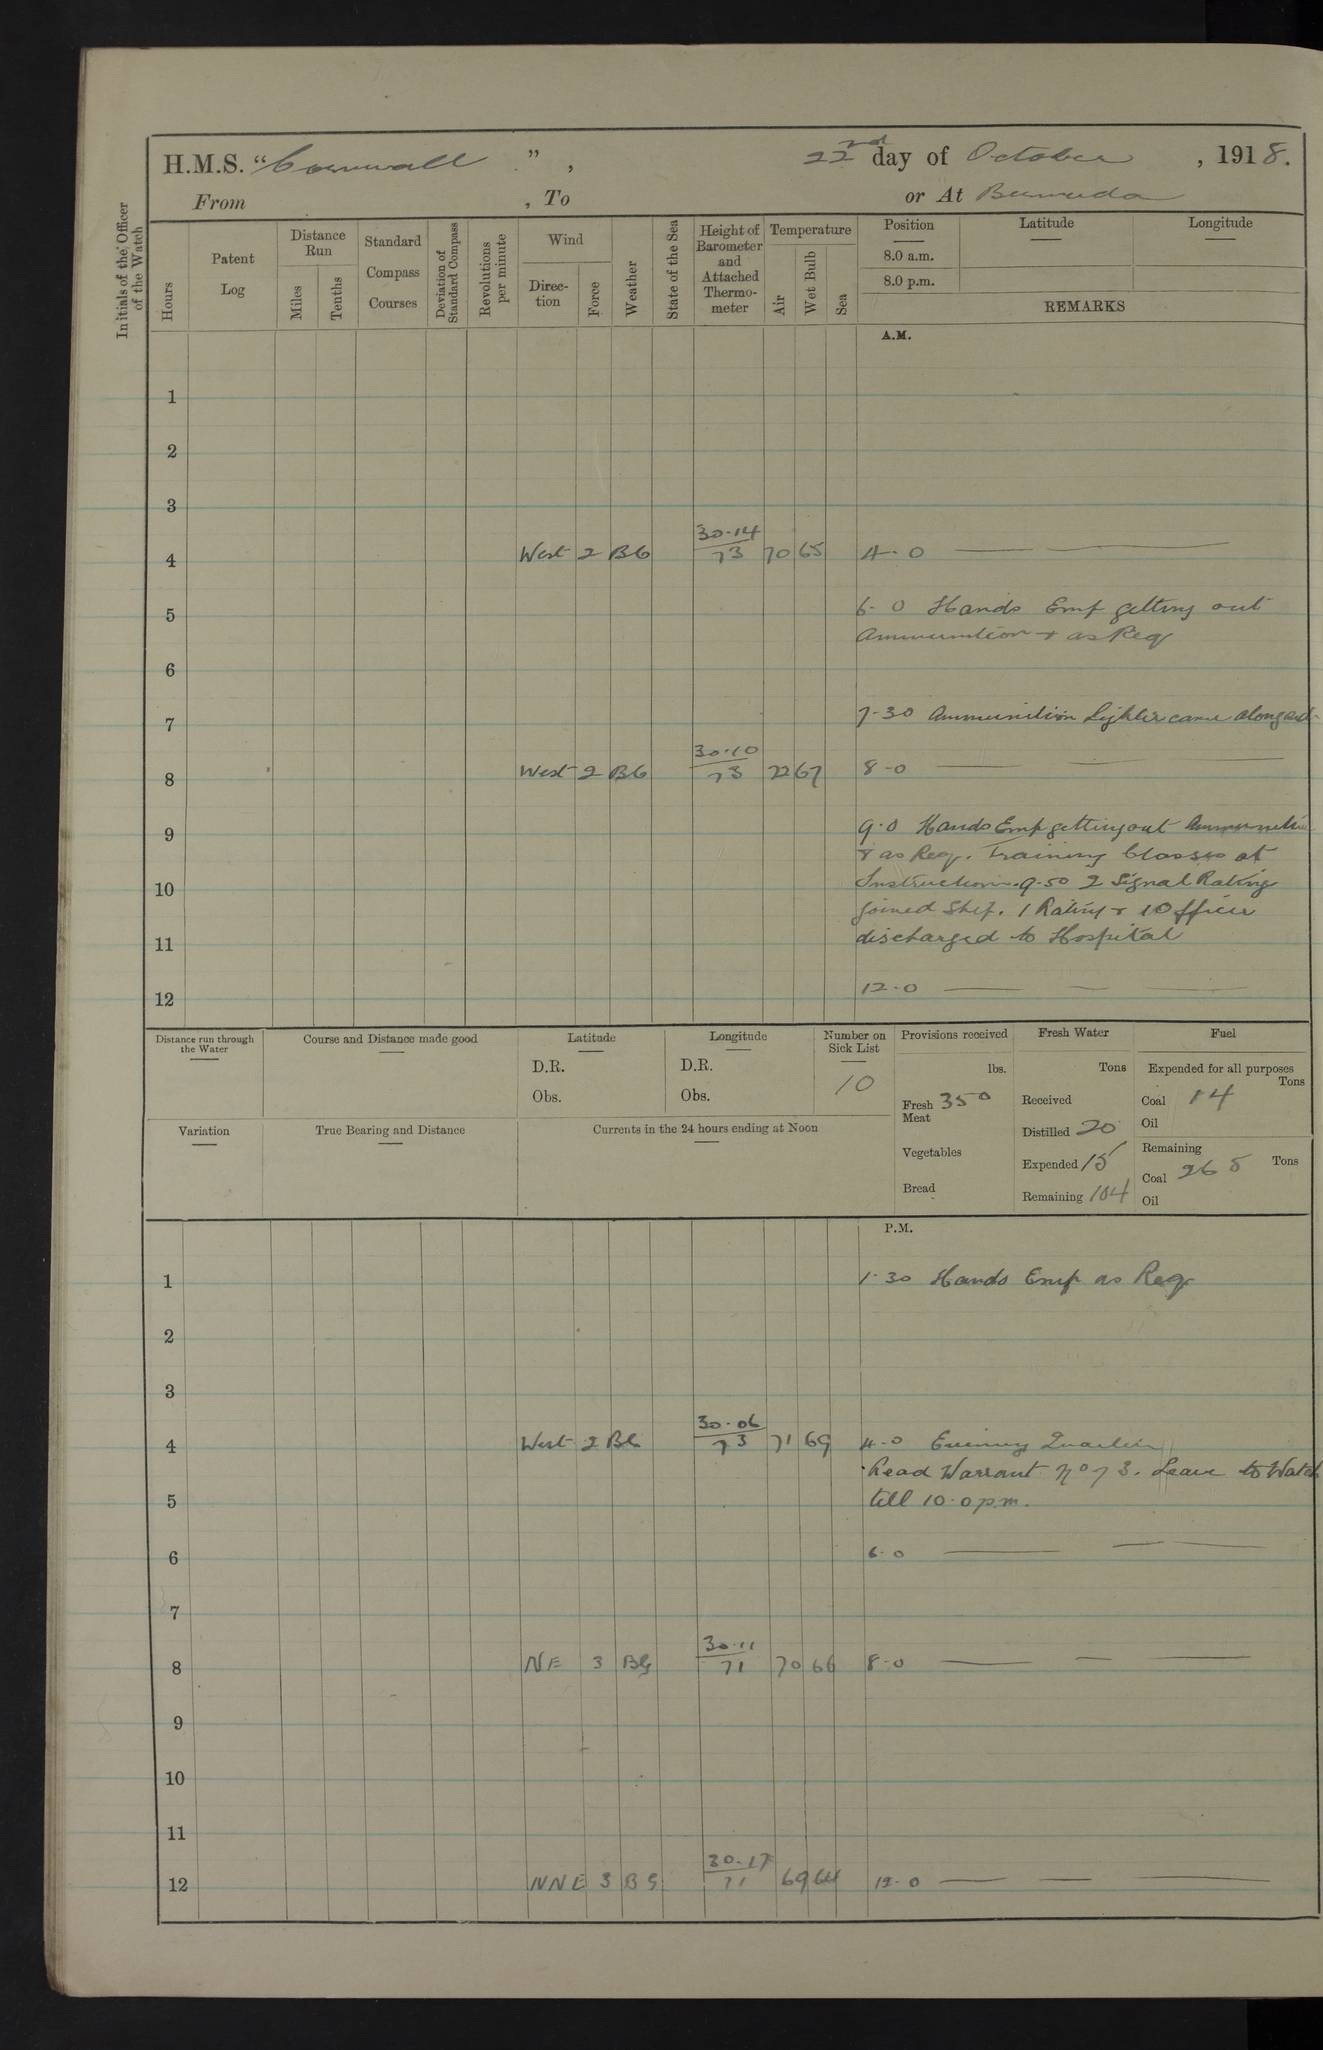 H.M.S. "Cornwall", 22nd day of October, 1918.
From , To or At Bermuda
Initials of the Officer of the Watch
Hours
Patent Log
Distance Run
Miles
Tenths
Standard Compass Courses
Deviation of Standard Compass
Revolutions per minute
Wind
Direction
Force
Weather
State of the Sea
Height of Barometer and Attached Thermometer
Temperature
Air
Wet Bulb
Sea
Position Latitude Longitude
8.0 a.m.
8.0 p.m.
REMARKS
A.M.
1
2
3
4 West 2 BC 30.14 73 70 65 4.0
5 6.0 Hands Emp getting out
Ammunition & as Req
6
7 7.30 Ammunition Lighter came alongside
8 West 2 BC 30.10 73 72 67 8.0
9 9.0 Hands Emp getting out Ammunition
& as Req. Training Classes at
10 Instruction. 9.50 2 Signal Rating
joined Ship. 1 Rating & 1 Officer
11 discharged to Hospital
12 12.0
Distance run through the Water
Course and Distance made good
Latitude
D.R.
Obs.
Longitude
D.R.
Obs.
Number on Sick List
10
Provisions received
lbs.
Fresh Meat 350
Vegetables
Bread
Fresh Water
Tons
Received
Distilled 20
Expended 15
Remaining 104
Fuel
Expended for all purposes
Tons
Coal 14
Oil
Remaining
Coal 265 Tons
Oil
Variation
True Bearing and Distance
Currents in the 24 hours ending at Noon
P.M.
1 1.30 Hands Emp as Req
2
3
4 West 2 BC 30.06 73 71 69 4.0 Evening Quarters
Read Warrant No 73. Leave to Watch
5 till 10.0 p.m.
6 6.0
7
8 NE 3 BC 30.11 71 70 66 8.0
9
10
11
12 NNE 3 BC 30.17 71 69 64 12.0